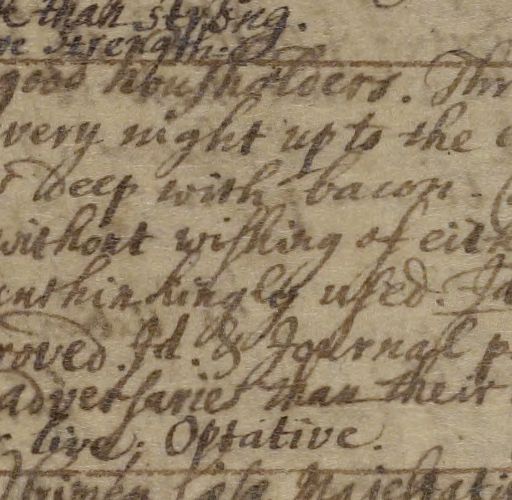 than strong.
strength.
good housholders. Thr
very night up to the e
deep with bacon.
without wishing of eith
unthinkingly used. Ja
roved. Id. & Journal p
adversaries than their
live. Optative.